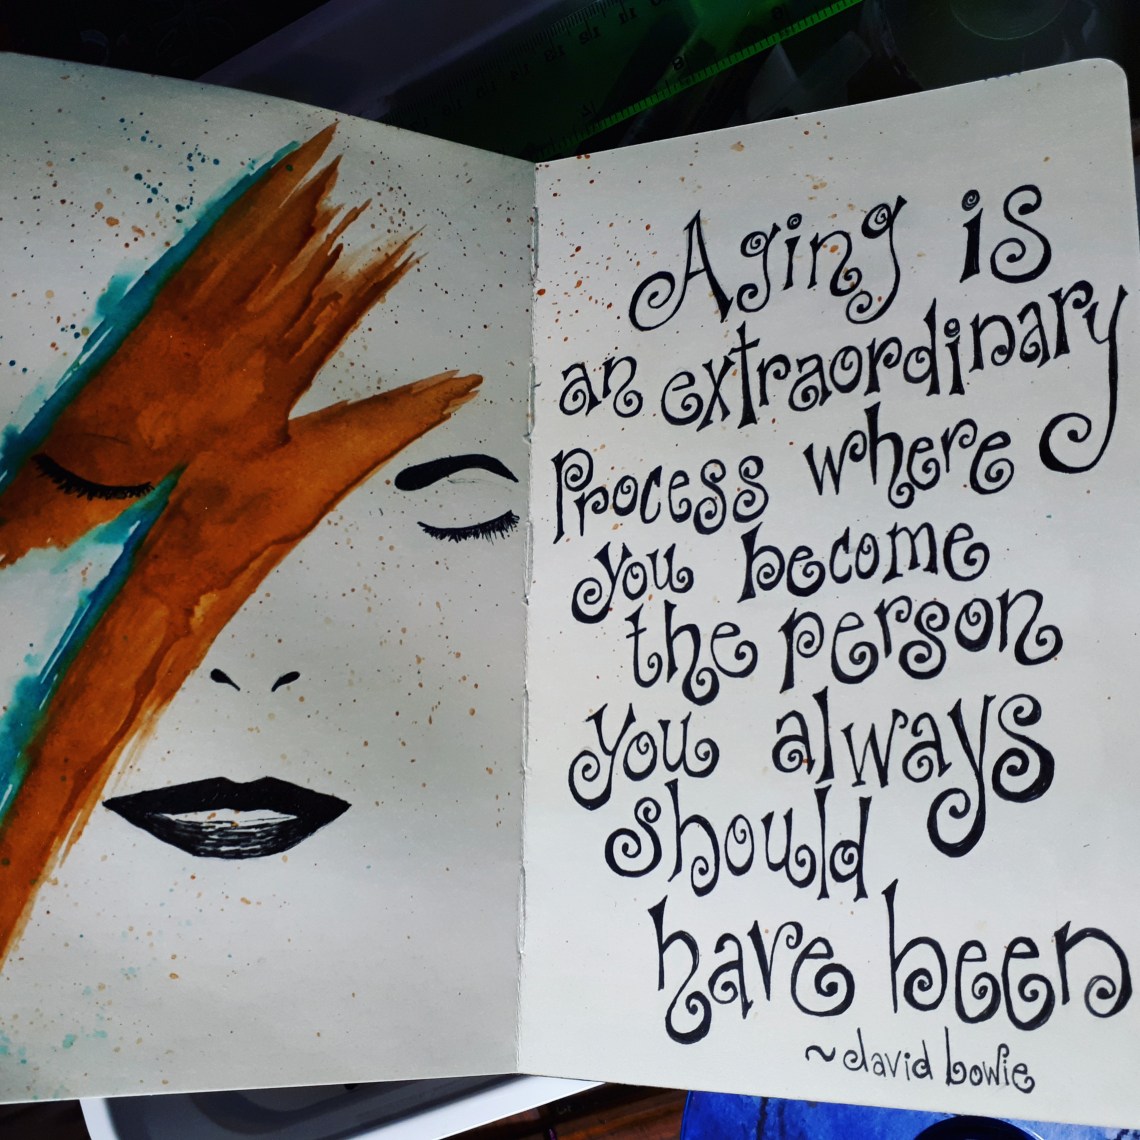 Aging is
an extraordinary
Process where
you become
the person
you always
should
have been
~david bowie